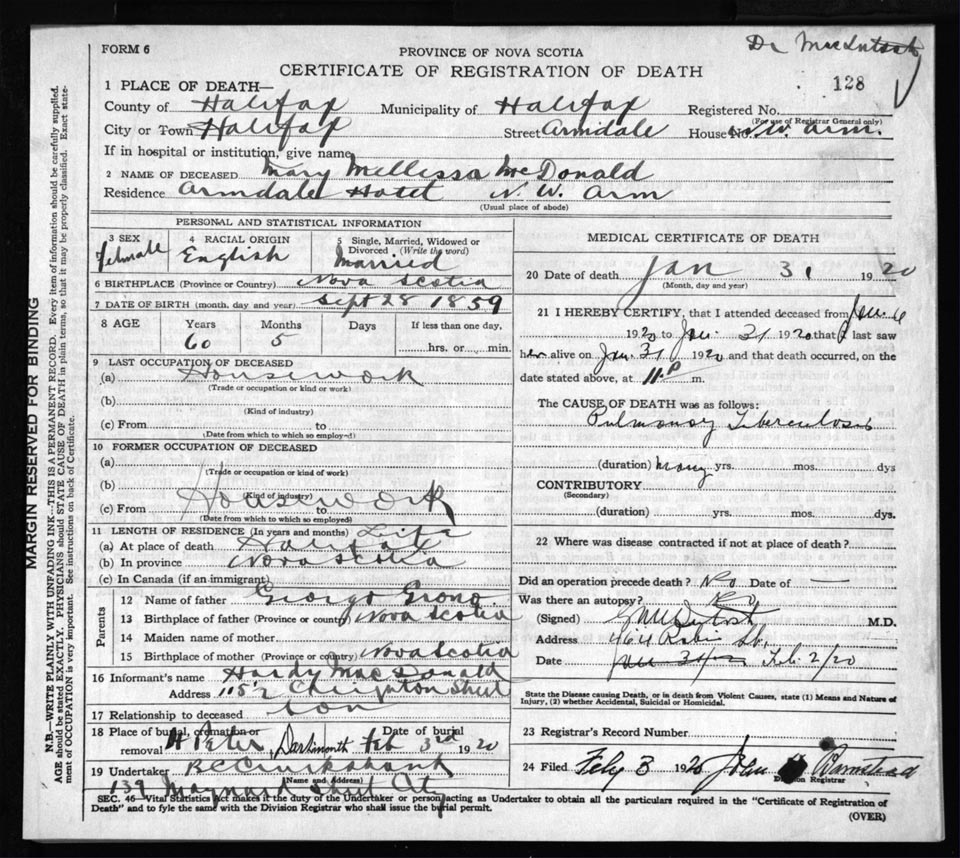 Dr MacIntosh
FORM 6
PROVINCE OF NOVA SCOTIA
CERTIFICATE OF REGISTRATION OF DEATH
128
1 PLACE OF DEATH—
County of Halifax Municipality of Halifax Registered No.
(For use of Registrar General only)
City or Town Halifax Street Armdale House No. N. W. Arm.
If in hospital or institution, give name
2 NAME OF DECEASED Mary Mellissa McDonald
Residence Armdale Hotel N. W. Arm
(Usual place of abode)
PERSONAL AND STATISTICAL INFORMATION
3 SEX 4 RACIAL ORIGIN 5 Single, Married, Widowed or Divorced (Write the word)
Female English Married
6 BIRTHPLACE (Province or Country) Nova Scotia
7 DATE OF BIRTH (month, day and year) Sept 28 1859
8 AGE Years Months Days If less than one day,
60 5 hrs. or min.
9 LAST OCCUPATION OF DECEASED
(a) Housework
(Trade or occupation or kind or work)
(b)
(Kind of industry)
(c) From to
(Date from which to which so employed)
10 FORMER OCCUPATION OF DECEASED
(a)
(Trade or occupation or kind of work)
(b)
(Kind of industry)
Housework
(c) From to
(Date from which to which so employed)
11 LENGTH OF RESIDENCE (In years and months) Life
(a) At place of death Halifax
(b) In province Nova Scotia
(c) In Canada (if an immigrant)
Parents
12 Name of father George Grono
13 Birthplace of father (Province or country) Nova Scotia
14 Maiden name of mother
15 Birthplace of mother (Province or country) Nova Scotia
16 Informant's name Hardy MacDonald
Address 115½ Creighton Street
17 Relationship to deceased Son
18 Place of burial, cremation or removal Date of burial
St Peter, Dartmouth Feb 3rd 1920
19 Undertaker R C Cruikshank
(Name and Address)
139 Maynard Street City
MEDICAL CERTIFICATE OF DEATH
20 Date of death Jan 31 1920
(Month, day and year)
21 I HEREBY CERTIFY, that I attended deceased from Jan. 6
1920 to Jan. 31 1920 that I last saw
her alive on Jan. 31 1920 and that death occurred, on the
date stated above, at 11.P m.
The CAUSE OF DEATH was as follows:
Pulmonary Tuberculosis
(duration) many yrs. mos. dys
CONTRIBUTORY
(Secondary)
(duration) yrs. mos. dys.
22 Where was disease contracted if not at place of death?
Did an operation precede death? No Date of —
Was there an autopsy? No
(Signed) M.D.
Address 464 Robie St.
Date Feb. 2/20
State the Disease causing Death, or in death from Violent Causes, state (1) Means and Nature of
Injury, (2) whether Accidental, Suicidal or Homicidal.
23 Registrar's Record Number
24 Filed Feby 3 1920 John Barnstead
Division Registrar
SEC. 46—Vital Statistics Act makes it the duty of the Undertaker or person acting as Undertaker to obtain all the particulars required in the "Certificate of Registration of
Death" and to fyle the same with the Division Registrar who shall issue the burial permit.
(OVER)
MARGIN RESERVED FOR BINDING
N.B.—WRITE PLAINLY WITH UNFADING INK—THIS IS A PERMANENT RECORD. Every item of information should be carefully supplied.
AGE should be stated EXACTLY. PHYSICIANS should STATE CAUSE OF DEATH in plain terms, so that it may be properly classified. Exact statement of OCCUPATION is very important. See instructions on back of Certificate.